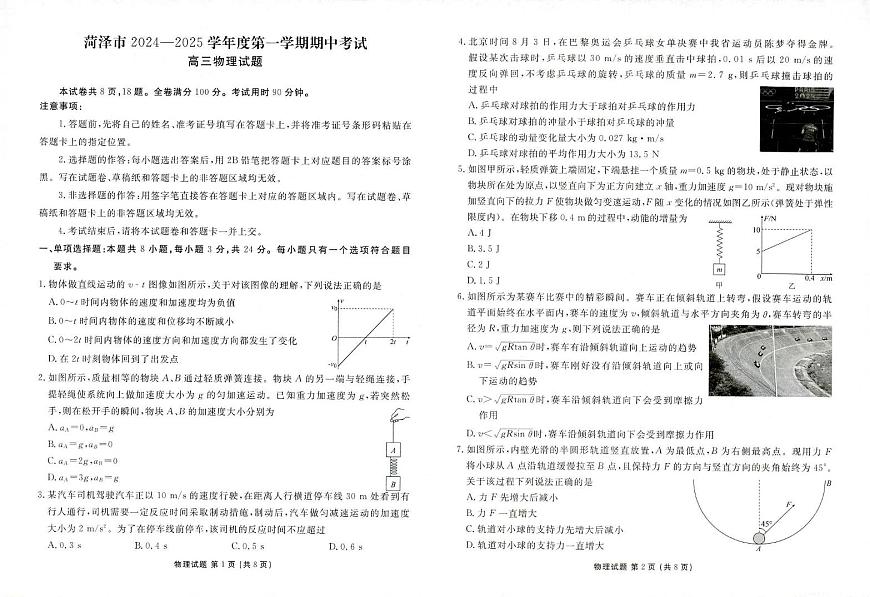 菏泽市 2024—2025 学年度第一学期期中考试
高三物理试题
本试卷共 8 页,18 题。全卷满分 100 分。考试用时 90 分钟。
注意事项:
1.答题前,先将自己的姓名、准考证号填写在答题卡上,并将准考证号条形码粘贴在
答题卡上的指定位置。
2.选择题的作答:每小题选出答案后,用 2B 铅笔把答题卡上对应题目的答案标号涂
黑。写在试题卷、草稿纸和答题卡上的非答题区域均无效。
3.非选择题的作答:用签字笔直接答在答题卡上对应的答题区域内。写在试题卷、草
稿纸和答题卡上的非答题区域均无效。
4.考试结束后,请将本试题卷和答题卡一并上交。
一、单项选择题:本题共 8 小题,每小题 3 分,共 24 分。每小题只有一个选项符合题目
要求。
1.物体做直线运动的 v-t 图像如图所示,关于对该图像的理解,下列说法正确的是
A.0~t 时间内物体的速度和加速度均为负值
B.0~t 时间内物体的速度和位移均不断减小
C.0~2t 时间内物体的速度方向和加速度方向都发生了变化
D.在 2t 时刻物体回到了出发点
v
v₀
O
t
2t
t
-v₀
2.如图所示,质量相等的物块 A、B 通过轻质弹簧连接。物块 A 的另一端与轻绳连接,手
提轻绳使系统向上做加速度大小为 g 的匀加速运动。已知重力加速度为 g,若突然松
手,则在松开手的瞬间,物块 A、B 的加速度大小分别为
A.aA=0,aB=g
B.aA=g,aB=0
C.aA=2g,aB=0
D.aA=3g,aB=g
A
B
3.某汽车司机驾驶汽车正以 10 m/s 的速度行驶,在距离人行横道停车线 30 m 处看到有
行人通行,司机需要一定反应时间采取制动措施,制动后,汽车做匀减速运动的加速度
大小为 2 m/s²。为了在停车线前停车,该司机的反应时间不应超过
A.0.3 s B.0.4 s C.0.5 s D.0.6 s
物理试题 第 1 页 (共 8 页)
4.北京时间 8 月 3 日,在巴黎奥运会乒乓球女单决赛中我省运动员陈梦夺得金牌。
假设某次击球时,乒乓球以 30 m/s 的速度垂直击中球拍,0.01 s 后以 20 m/s 的速
度反向弹回,不考虑乒乓球的旋转,乒乓球的质量 m=2.7 g,则乒乓球撞击球拍的
过程中
A.乒乓球对球拍的作用力大于球拍对乒乓球的作用力
B.乒乓球对球拍的冲量小于球拍对乒乓球的冲量
C.乒乓球的动量变化量大小为 0.027 kg·m/s
D.乒乓球对球拍的平均作用力大小为 13.5 N
5.如图甲所示,轻质弹簧上端固定,下端悬挂一个质量 m=0.5 kg 的物块,处于静止状态,以
物块所在处为原点,以竖直向下为正方向建立 x 轴,重力加速度 g=10 m/s²。现对物块施
加竖直向下的拉力 F 使物块做匀变速运动,F 随 x 变化的情况如图乙所示(弹簧处于弹性
限度内)。在物块下移 0.4 m 的过程中,动能的增量为
A.4 J
B.3.5 J
C.2 J
D.1.5 J
m
甲
F/N
10
5
0
0.4 x/m
乙
6.如图所示为某赛车比赛中的精彩瞬间。赛车正在倾斜轨道上转弯,假设赛车运动的轨
道平面始终在水平面内,赛车的速度为 v,倾斜轨道与水平方向夹角为 θ,赛车转弯的半
径为 R,重力加速度为 g,则下列说法正确的是
A.v=√gRtan θ时,赛车有沿倾斜轨道向上运动的趋势
B.v=√gRsin θ时,赛车刚好没有沿倾斜轨道向上或向
下运动的趋势
C.v>√gRtan θ时,赛车沿倾斜轨道向下会受到摩擦力
作用
D.v<√gRsin θ时,赛车沿倾斜轨道向下会受到摩擦力作用
7.如图所示,内壁光滑的半圆形轨道竖直放置,A 为最低点,B 为右侧最高点。现用力 F
将小球从 A 点沿轨道缓慢拉至 B 点,且保持力 F 的方向与竖直方向的夹角始终为 45°。
关于该过程下列说法正确的是
A.力 F 先增大后减小
B.力 F 一直增大
C.轨道对小球的支持力先增大后减小
D.轨道对小球的支持力一直增大
B
F
45°
A
物理试题 第 2 页 (共 8 页)